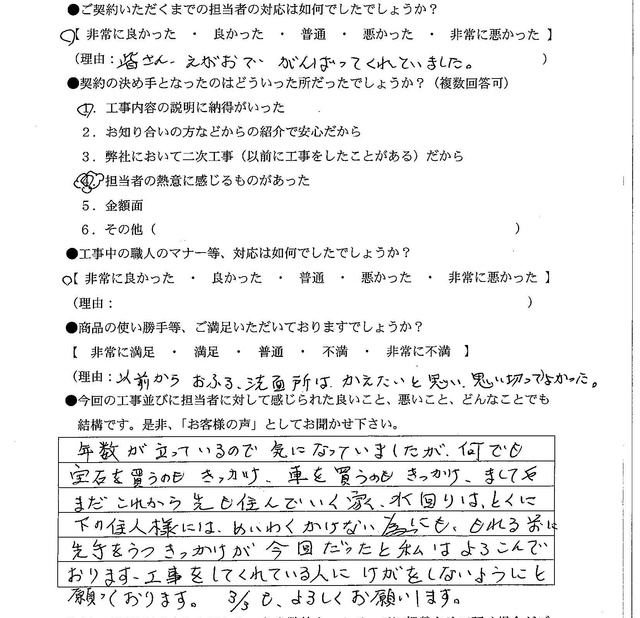 ●ご契約いただくまでの担当者の対応は如何でしたでしょうか？
【 非常に良かった ・ 良かった ・ 普通 ・ 悪かった ・ 非常に悪かった 】
（理由：皆さん、えがおで がんばってくれていました。 ）
●契約の決め手となったのはどういった所だったでしょうか？（複数回答可）
1．工事内容の説明に納得がいった
2．お知り合いの方などからの紹介で安心だから
3．弊社において二次工事（以前に工事をしたことがある）だから
4．担当者の熱意に感じるものがあった
5．金額面
6．その他（ ）
●工事中の職人のマナー等、対応は如何でしたでしょうか？
【 非常に良かった ・ 良かった ・ 普通 ・ 悪かった ・ 非常に悪かった 】
（理由： ）
●商品の使い勝手等、ご満足いただいておりますでしょうか？
【 非常に満足 ・ 満足 ・ 普通 ・ 不満 ・ 非常に不満 】
（理由：以前から おふろ、洗面所は、かえたいと思い、思い切ってよかった。
●今回の工事並びに担当者に対して感じられた良いこと、悪いこと、どんなことでも
結構です。是非、「お客様の声」としてお聞かせ下さい。
年数が立っているので 気になっていましたが、何でも
宝石を買うのも きっかけ、車を買うのも きっかけ、ましてや
まだ これから 先も住んでいく家、水回りは、とくに
下の住人様には、めいわくかけない為にも、もれる前に
先手をうつ きっかけが 今回だったと私は よろこんで
おります。工事をしてくれている人に けがをしないようにと
願っております。 3/3も、よろしくお願いします。